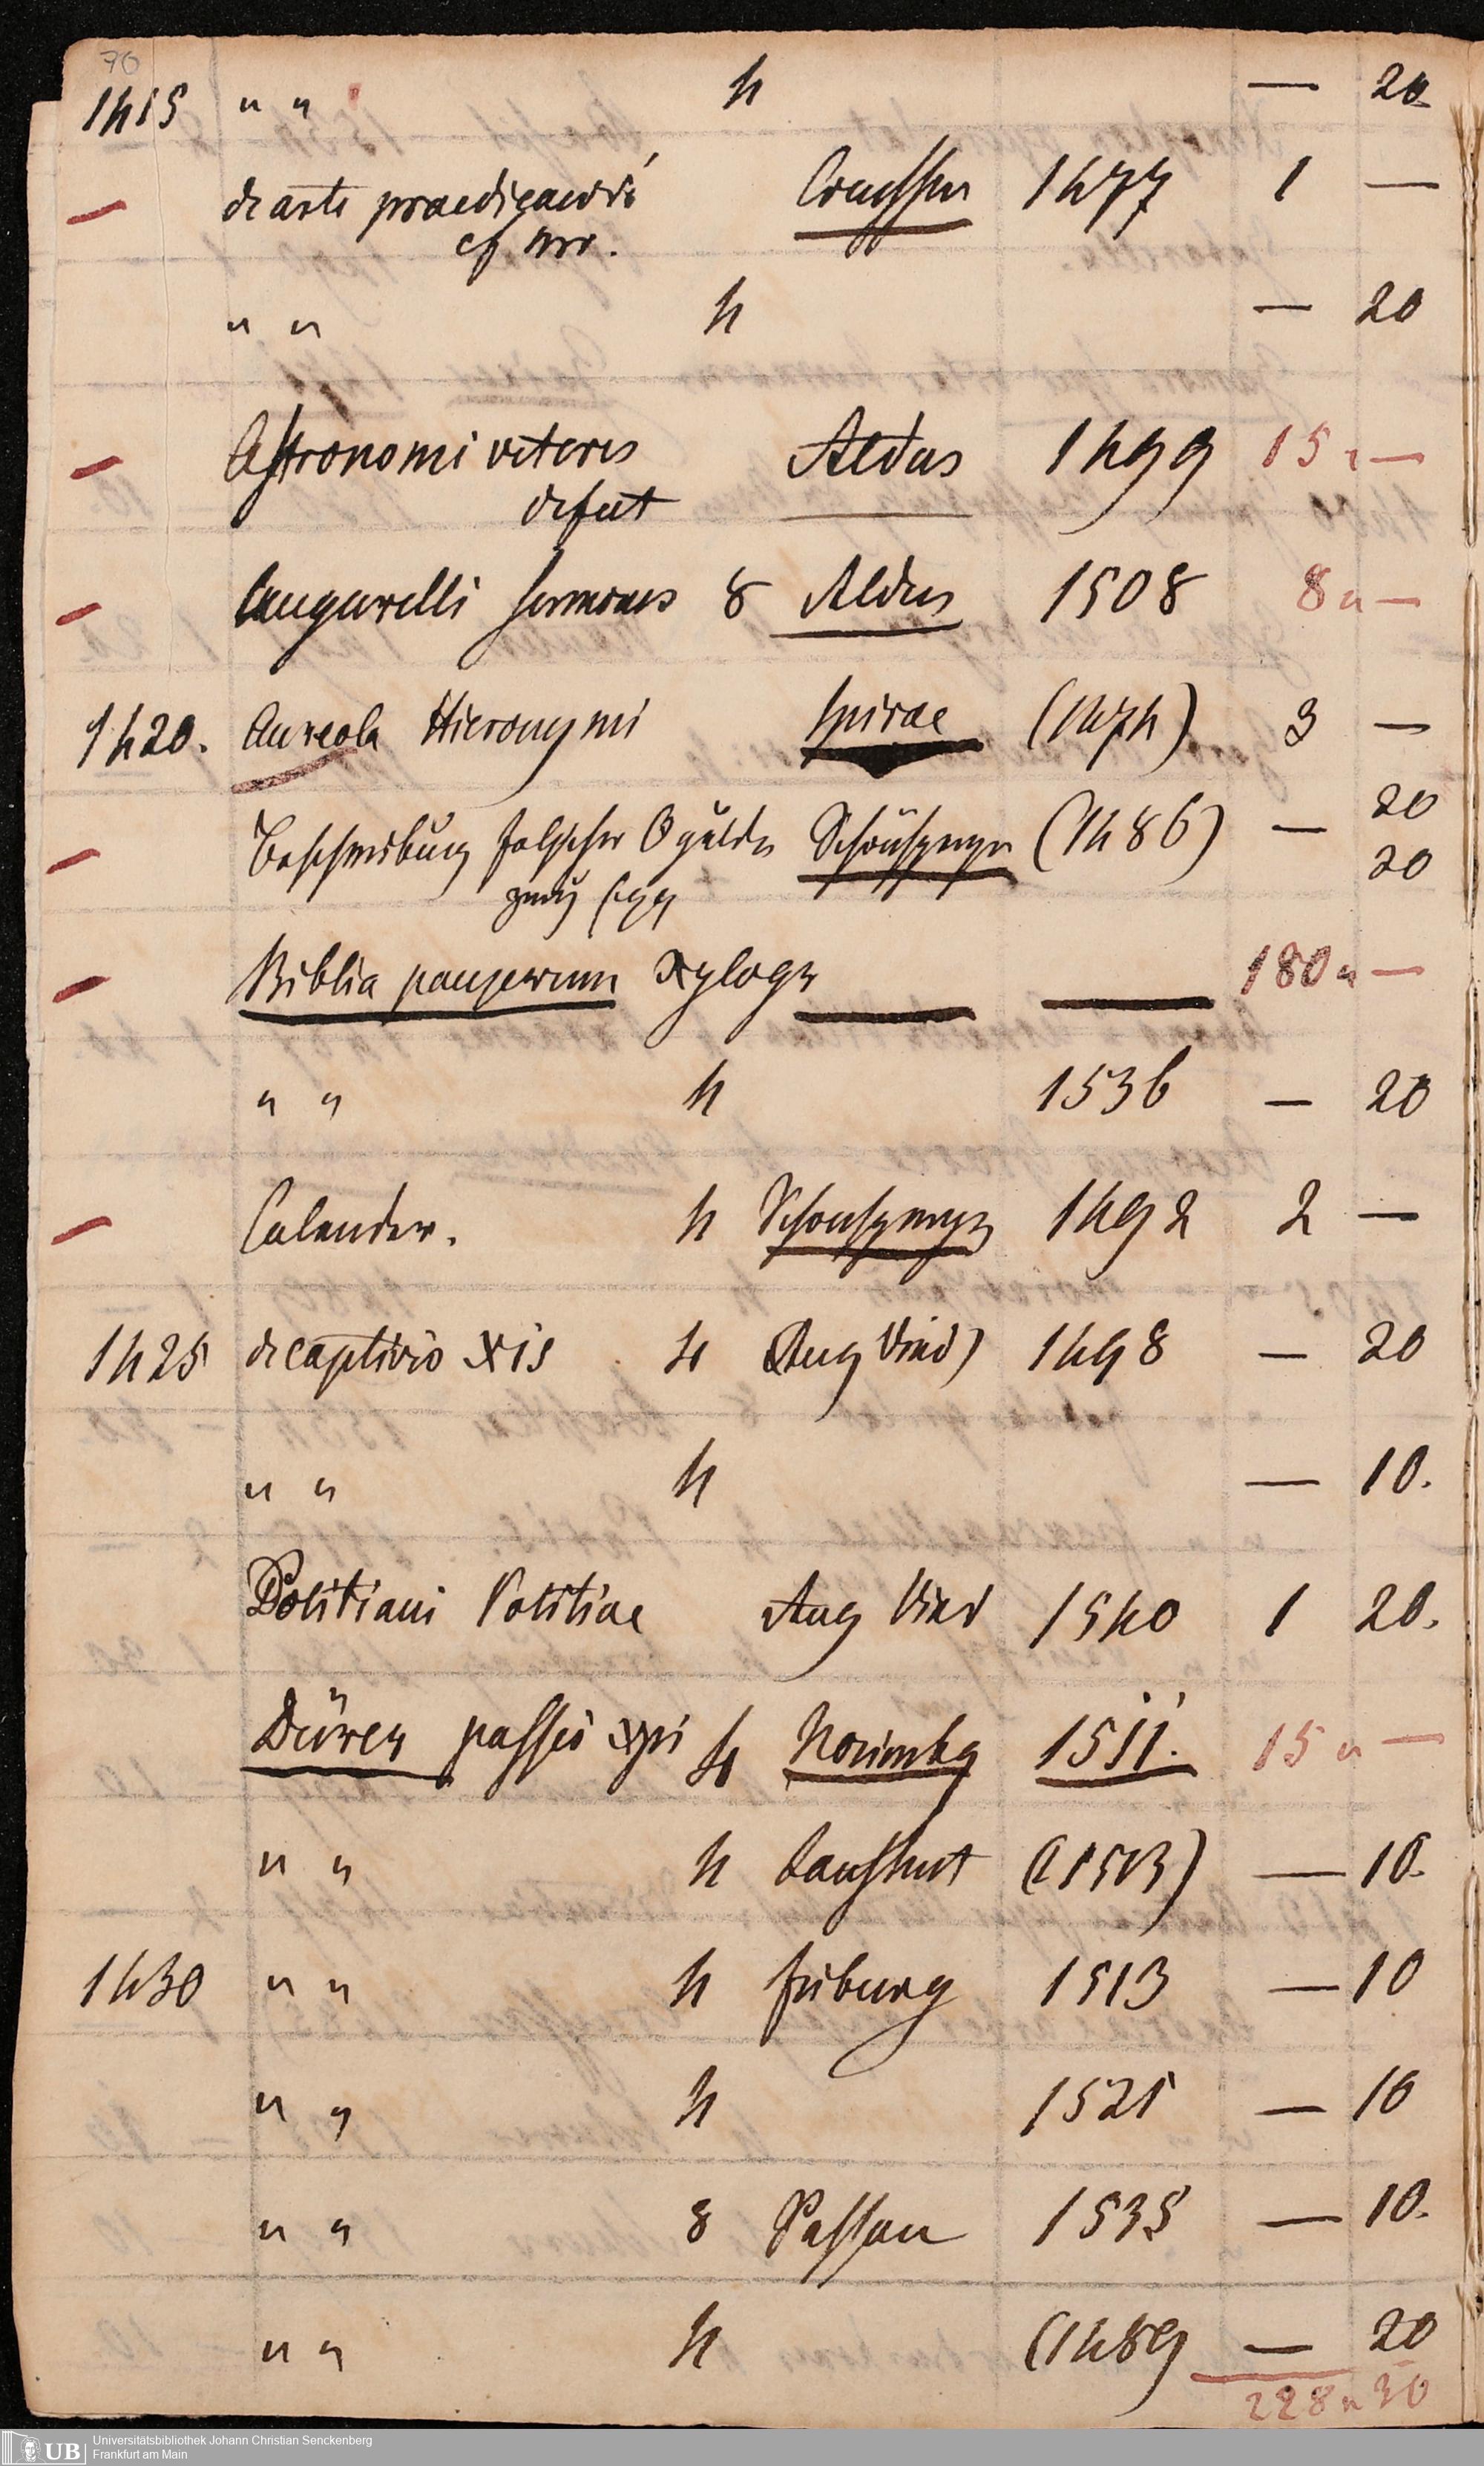 70
1415 " " 4 — 20
de arte praedicandi Creussner 1477 1 —
cf nro.
" " 4 — 20
Astronomi veteres Aldus 1499 15 " —
defect
Augurelli sermones 8 Aldus 1508 8 " —
1420. Aureola Hieronymi Spirae (1474) 3 —
Beschreibung falscher Gulden Schönsperger (1486) — 20
20
Biblia pauperum Xylogr 180 " —
" " 4 1536 — 20
Calender. 4 Schonsperger 1492 2 —
1425 de captivis Xis 4 (Aug Vind) 1498 — 20
" " 4 — 10.
Politiani Politiae Aug Vind 1540 1 20.
Dürer passio xpi 4 Norimbg 1511. 15 " —
" " 4 Landshut (1513) — 10.
1430 " " 4 friburg 1513 — 10
" " 4 1521 — 10
" " 8 Passau 1535 — 10.
" " 4 (1489 — 20
228 " 30
UB Universitätsbibliothek Johann Christian Senckenberg
Frankfurt am Main